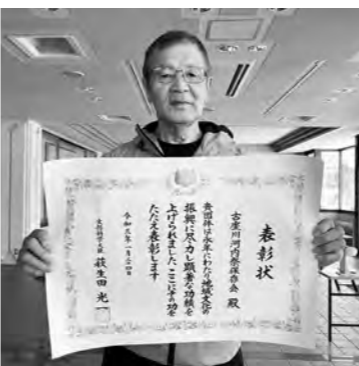 表彰状
古座川河内祭保存会 殿
貴団体は永年にわたり地域文化の
振興に尽力し顕著な功績を
上げられました ここにその功を
たたえ表彰します
令和三年一月二四日
文部科学大臣 萩生田 光一